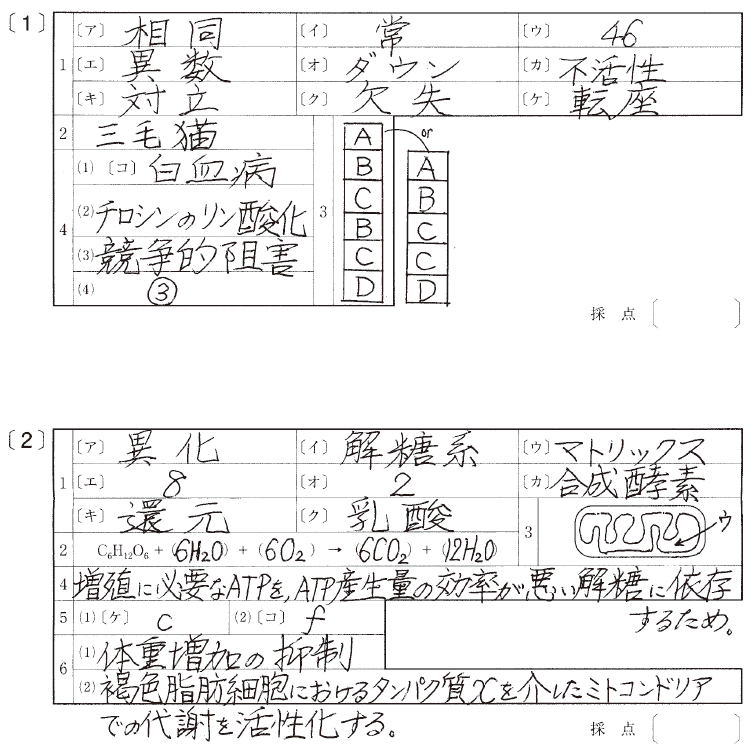 〔1〕
1 〔ア〕 相同 〔イ〕 常 〔ウ〕 46
〔エ〕 異数 〔オ〕 ダウン 〔カ〕 不活性
〔キ〕 対立 〔ク〕 欠失 〔ケ〕 転座
2 三毛猫
3
A
B
C
B
C
D
or
A
B
C
C
D
4 (1) 〔コ〕 白血病
(2) チロシンのリン酸化
(3) 競争的阻害
(4) ③
採点
〔2〕
1 〔ア〕 異化 〔イ〕 解糖系 〔ウ〕 マトリックス
〔エ〕 8 〔オ〕 2 〔カ〕 合成酵素
〔キ〕 還元 〔ク〕 乳酸
3 ウ
2 C₆H₁₂O₆ + (6H₂O) + (6O₂) → (6CO₂) + (12H₂O)
4 増殖に必要なATPを,ATP産生量の効率が悪い解糖に依存
するため。
5 (1) 〔ケ〕 c (2) 〔コ〕 f
6 (1) 体重増加の抑制
(2) 褐色脂肪細胞におけるタンパク質Xを介したミトコンドリア
での代謝を活性化する。
採点